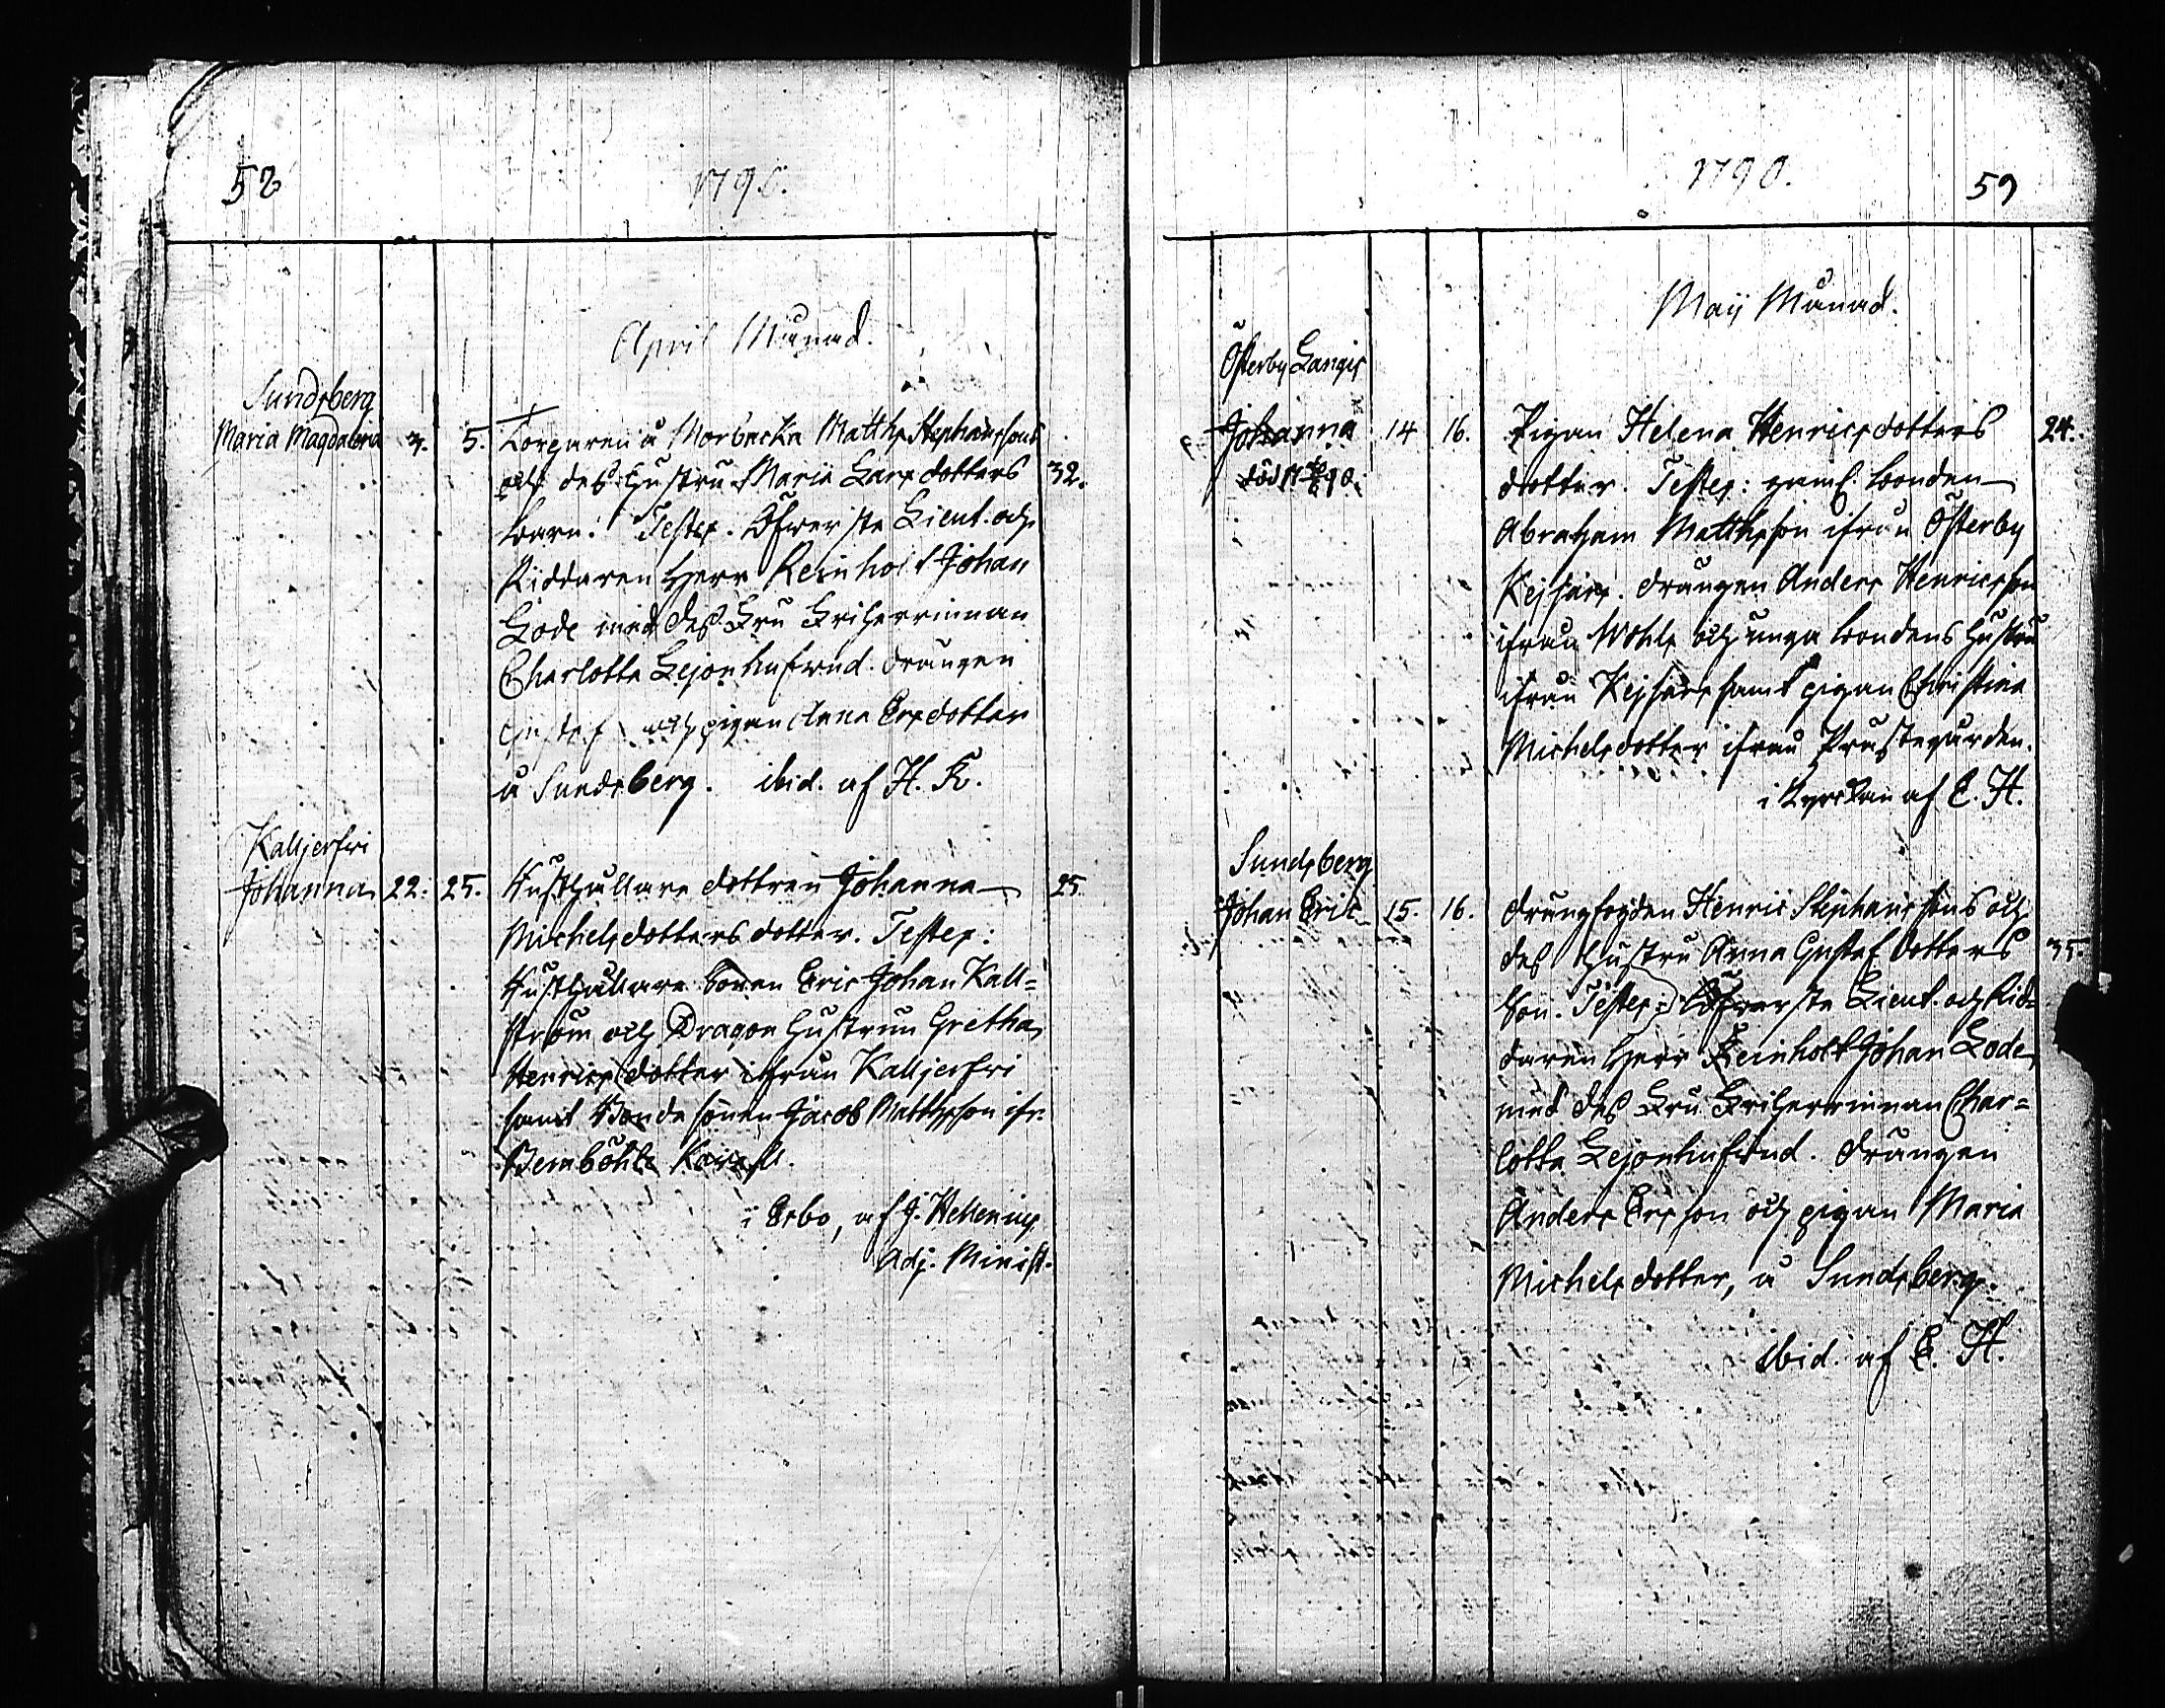 58
1790.
April Månad.
Sundsberg
Maria Magdalena 3. 5. Torparen å Morbacka Matths Stephanssons
och des Hustru Maria Larsdotters 32.
barn. Testes. Öfwerste Lieut. och
Riddaren Herr Reinholt Johan
Lode med des Fru Friherrinnan
Charlotta Lejonhufwud. drängen
Gustaf och pigan Anna Ersdotter
å Sundsberg. ibid. af H. K.
Kalljerfwi
Johanna 22. 25. Rusthållare dottren Johanna 25
Michelsdotters dotter. Testes:
Rusthållare sonen Eric Johan Kall=
ström och Dragon Hustrun Gretha
Henricsdotter ifrån Kalljerfwi
samt Bonde sonen Jacob Matthsson ifr.
Bemböhle
i Esbo, af J. Hellenius
Adj. Minist.
1790. 59
Maij Månad.
Österby Längis
Johanna 14 16. Pigan Helena Henricsdotters 24.
död
dotter. Testes: gamf. bonden
Abraham Matthsson ifrån Österby
Kejsars. drängen Anders Henricsson
ifrån Wohls och unga bondens Hustru
ifrån Kejsars samt pigan Christina
Michelsdotter ifrån Prästegården.
i Kyrckan af E. H.
Sundsberg
Johan Eric 15. 16. drängfogden Henric Stephanssons och
des Hustru Anna Gustafsdotters 35.
Son. Testes: Öfwerste Lieut. och Rid=
daren Herr Reinholt Johan Lode
med des Fru Friherrinnan Char=
lotta Lejonhufwud. drängen
Anders Ersson och pigan Maria
Michelsdotter, å Sundsberg.
ibid. af E. H.